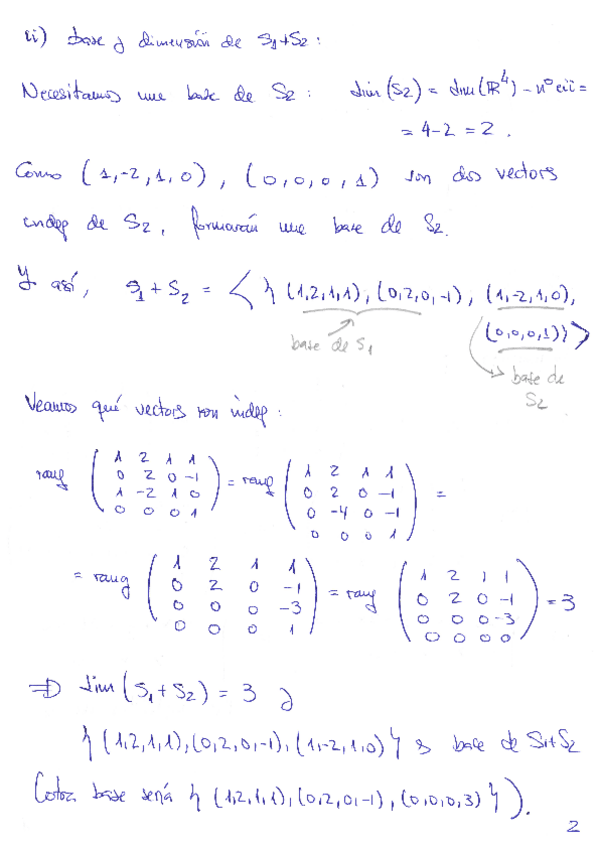 ii) base y dimensión de S₁+S₂ :
Necesitamos una base de S₂ : dim (S₂) = dim (ℝ⁴) - nº eii =
= 4-2 = 2 .
Como (1,-2,1,0) , (0,0,0,1) son dos vectors
indep de S₂, formarán una base de S₂.
Y así, S₁ + S₂ = < { (1,2,1,1), (0,2,0,-1), (1,-2,1,0),
(0,0,0,1)} >
base de S₁
base de
S₂
Veamos qué vectors son indep :
rang ( 1 2 1 1 ) = rang ( 1 2 1 1 ) =
( 0 2 0 -1 ) ( 0 2 0 -1 )
( 1 -2 1 0 ) ( 0 -4 0 -1 )
( 0 0 0 1 ) ( 0 0 0 1 )
= rang ( 1 2 1 1 ) = rang ( 1 2 1 1 ) = 3
( 0 2 0 -1 ) ( 0 2 0 -1 )
( 0 0 0 -3 ) ( 0 0 0 -3 )
( 0 0 0 1 ) ( 0 0 0 0 )
⇒ dim (S₁ + S₂) = 3 y
{ (1,2,1,1), (0,2,0,-1), (1,-2,1,0) } es base de S₁+S₂
(otra base sería { (1,2,1,1), (0,2,0,-1), (0,0,0,3) } ).
2